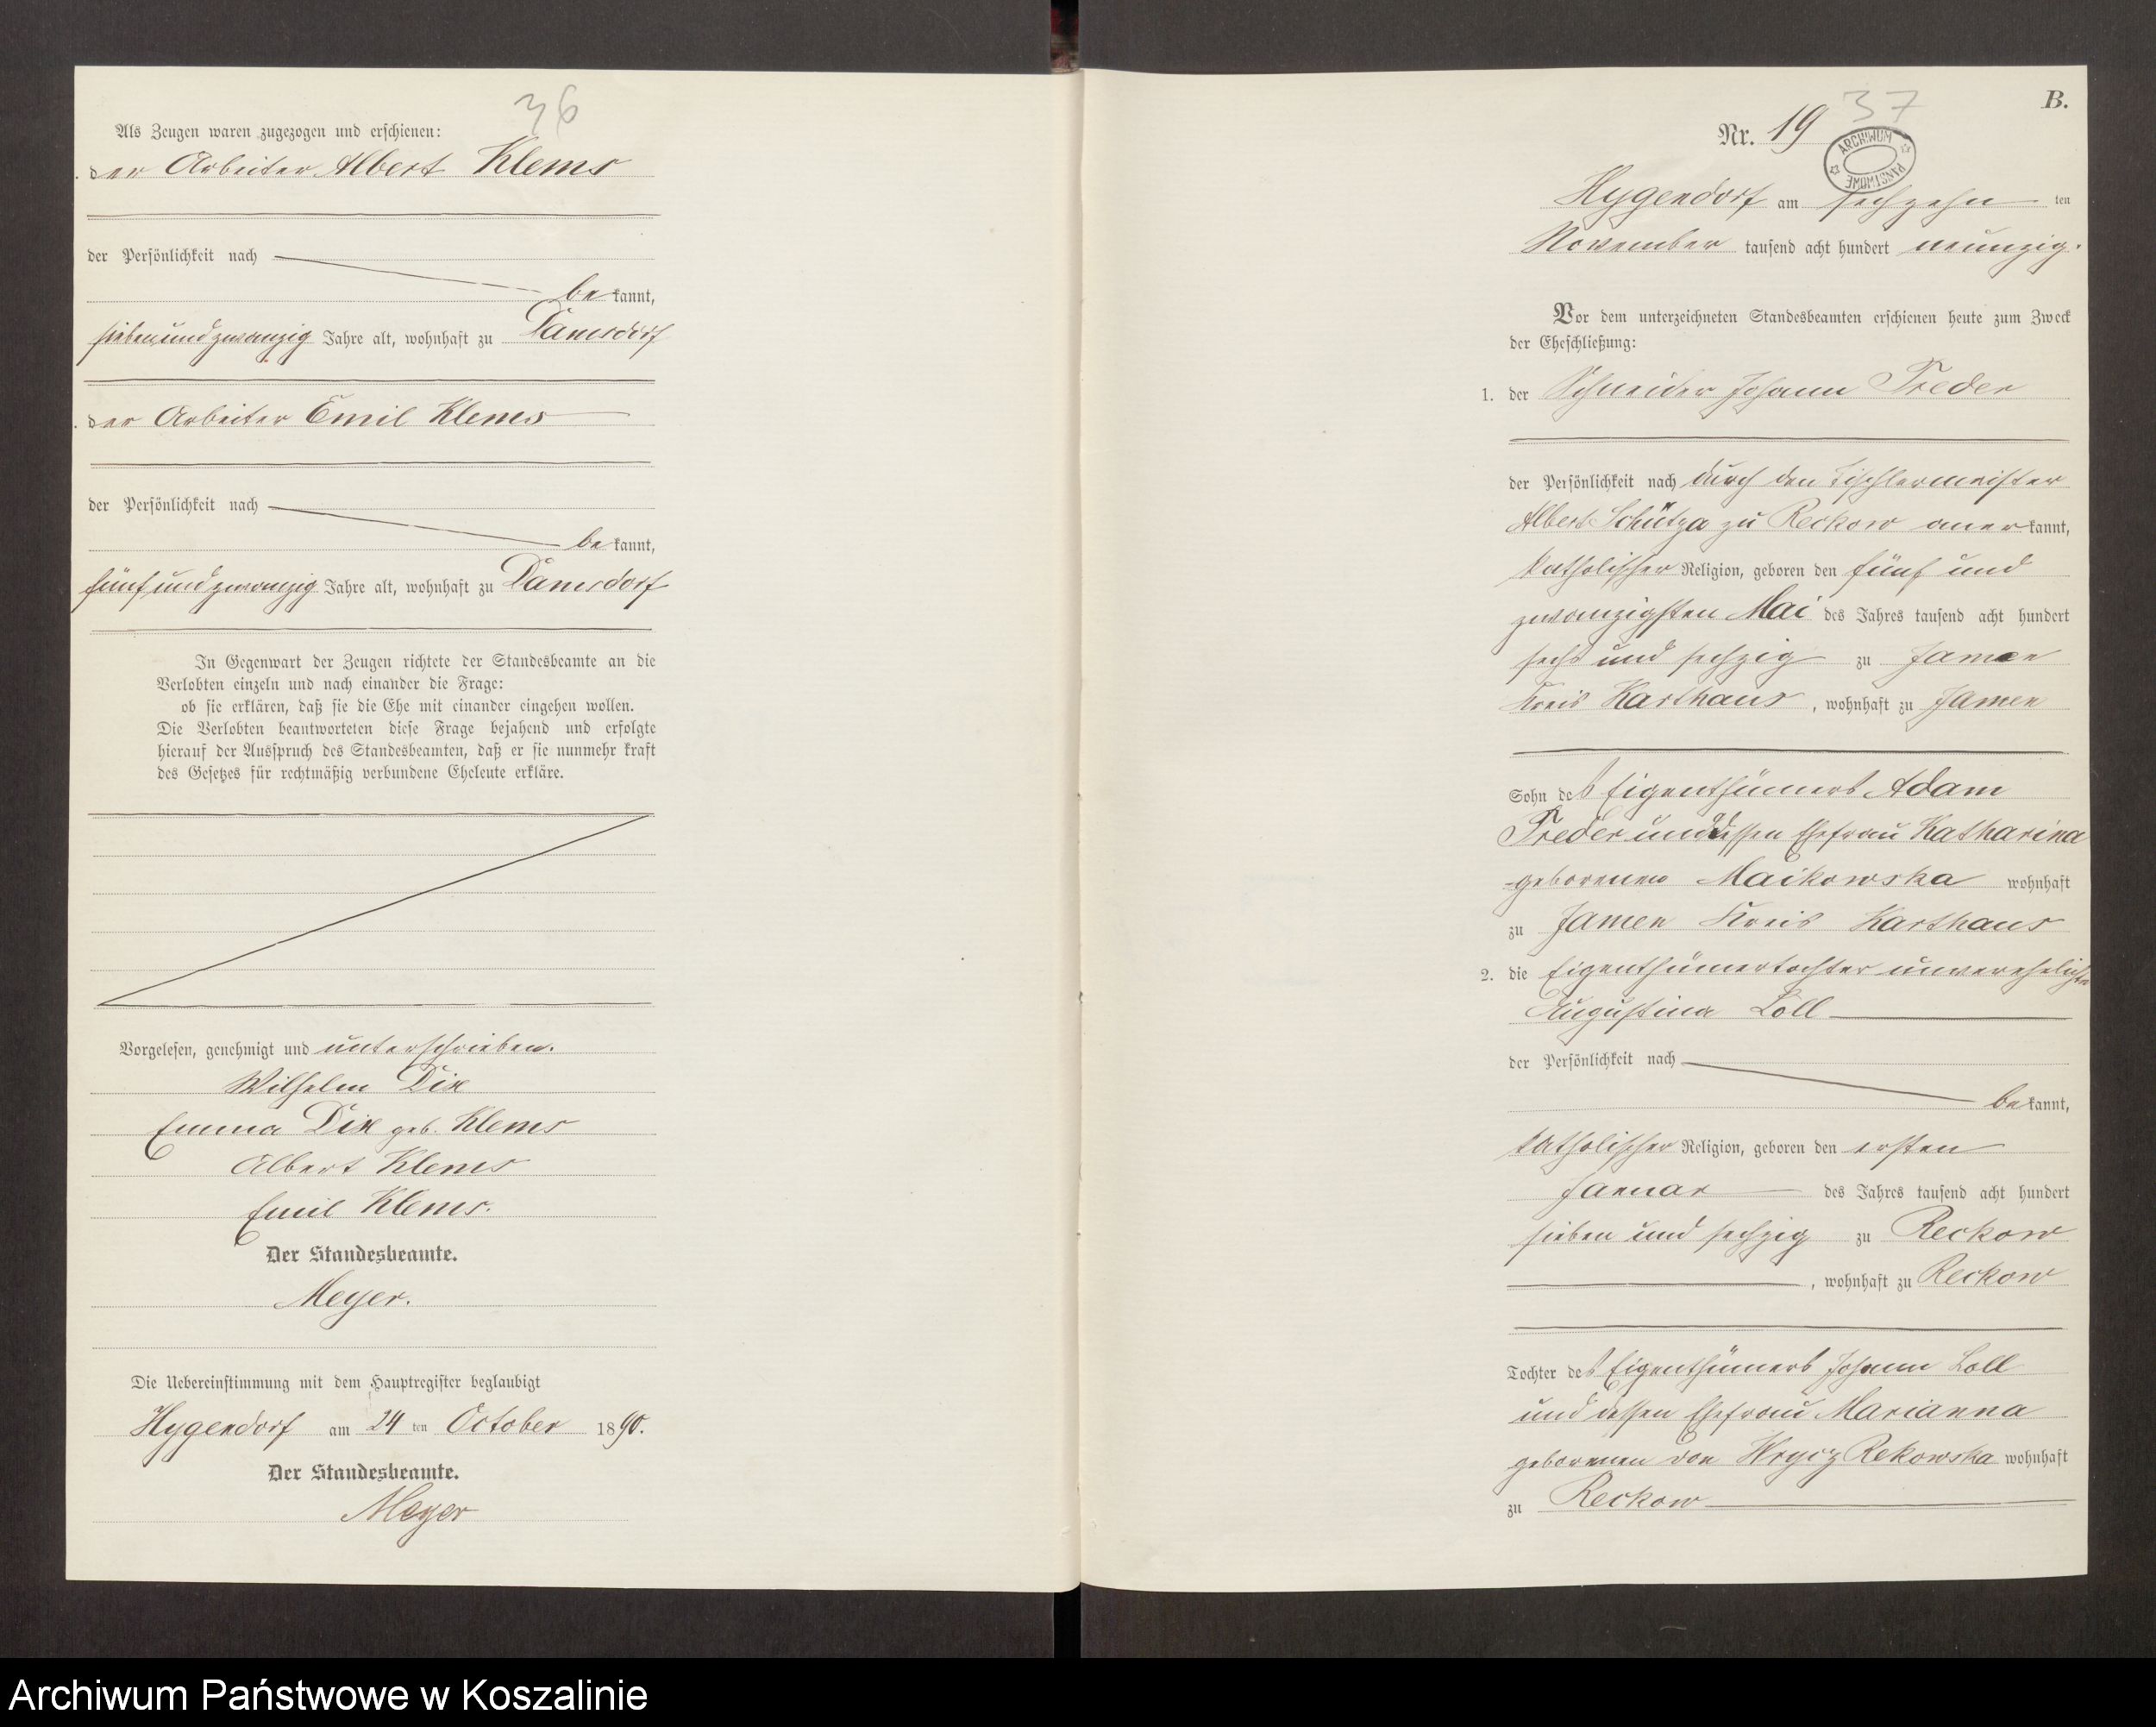 36
Als Zeugen waren zugezogen und erschienen:
der Arbeiter Albert Klems
der Persönlichkeit nach
bekannt,
siebenundzwanzig Jahre alt, wohnhaft zu Damsdorf
der Arbeiter Emil Klems
der Persönlichkeit nach
bekannt,
fünfundzwanzig Jahre alt, wohnhaft zu Damsdorf
In Gegenwart der Zeugen richtete der Standesbeamte an die
Verlobten einzeln und nach einander die Frage:
ob sie erklären, daß sie die Ehe mit einander eingehen wollen.
Die Verlobten beantworteten diese Frage bejahend und erfolgte
hierauf der Ausspruch des Standesbeamten, daß er sie nunmehr kraft
des Gesetzes für rechtmäßig verbundene Eheleute erkläre.
Vorgelesen, genehmigt und unterschrieben.
Wilhelm Dix
Emma Dix geb. Klems
Albert Klems
Emil Klems.
Der Standesbeamte.
Meyer.
Die Uebereinstimmung mit dem Hauptregister beglaubigt
Hygendorf am 24 ten October 1890.
Der Standesbeamte.
Meyer
B.
37
Nr. 19
ARCHIWUM PAŃSTWOWE
Hygendorf am sechzehn ten
November tausend acht hundert neunzig.
Vor dem unterzeichneten Standesbeamten erschienen heute zum Zweck
der Eheschließung:
1. der Schneider Johann Treder
der Persönlichkeit nach durch den Tischlermeister
Albert Schütza zu Reckow anerkannt,
katholischer Religion, geboren den fünf und
zwanzigsten Mai des Jahres tausend acht hundert
sechs und sechzig zu Jamen
Kreis Karthaus, wohnhaft zu Jamen
Sohn des Eigenthümers Adam
Treder und dessen Ehefrau Katharina
geborenen Maikowska wohnhaft
zu Jamen Kreis Karthaus
2. die Eigenthümertochter unverehelichte
Augustina Loll
der Persönlichkeit nach
bekannt,
katholischer Religion, geboren den ersten
Januar des Jahres tausend acht hundert
sieben und sechzig zu Reckow
, wohnhaft zu Reckow
Tochter des Eigenthümers Johann Loll
und dessen Ehefrau Marianna
geborenen von Wrycz Rekowska wohnhaft
zu Reckow
Archiwum Państwowe w Koszalinie